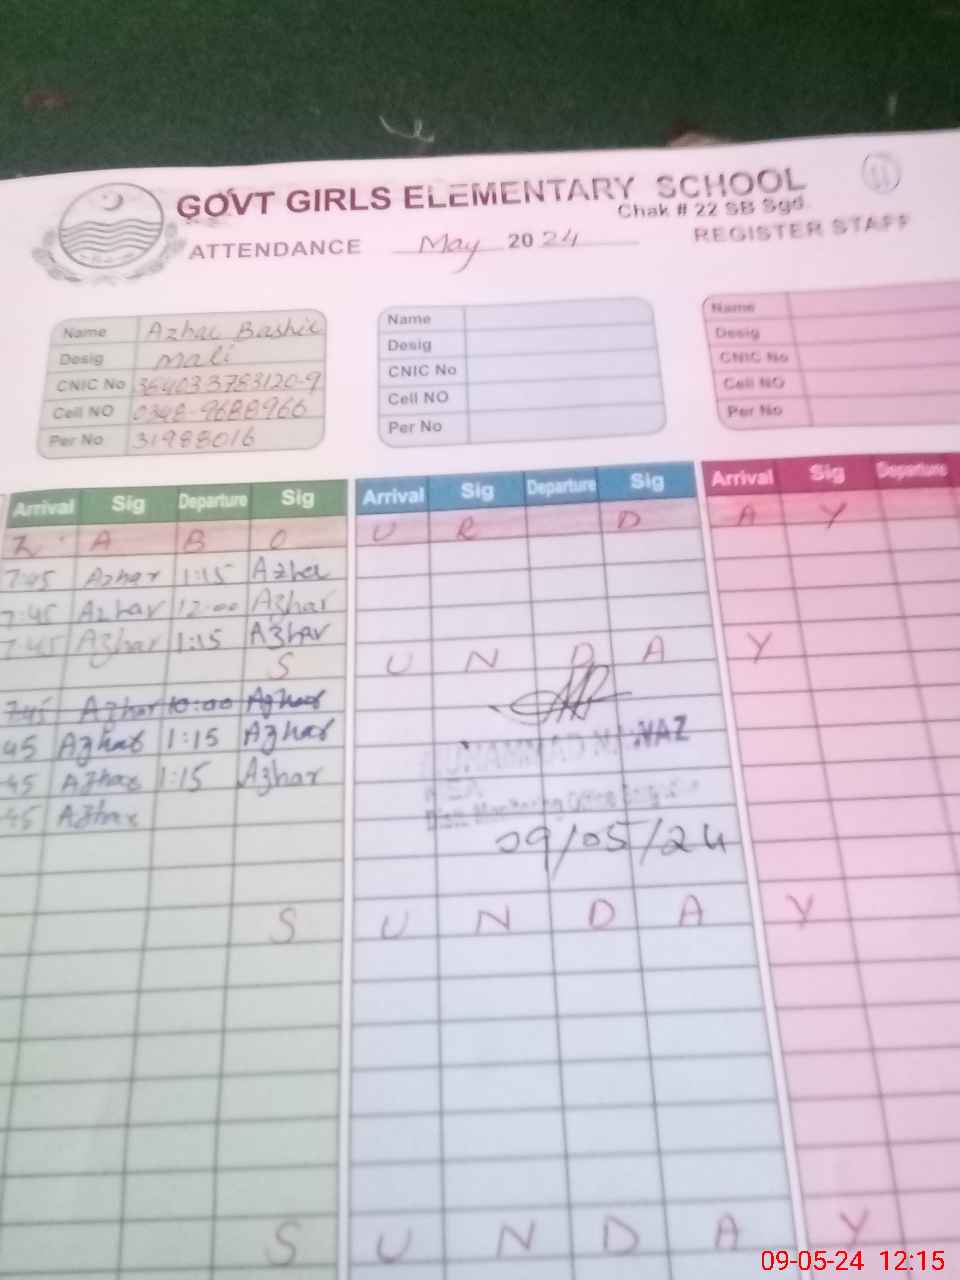 11
GOVT GIRLS ELEMENTARY SCHOOL
Chak # 22 SB Sgd.
ATTENDANCE May 2024 REGISTER STAFF
Name Azhar Bashir
Desig Mali
CNIC No
Cell NO 0348-9688966
Per No 31988016
Name
Desig
CNIC No
Cell NO
Per No
Name
Desig
CNIC No
Cell NO
Per No
Arrival Sig Departure Sig Arrival Sig Departure Sig Arrival Sig Departure
L A B O U R D A Y
7:45 Azhar 1:15 Azhar
7:45 Azhar 12:00 Azhar
7:45 Azhar 1:15 Azhar
S U N D A Y
7:45 Azhar 10:00 Azhar
45 Azhar 1:15 Azhar
45 Azhar 1:15 Azhar
45 Azhar
MUHAMMAD NAWAZ
Distt. Monitoring Office Sargodha
09/05/24
S U N D A Y
S U N D A Y
09-05-24 12:15